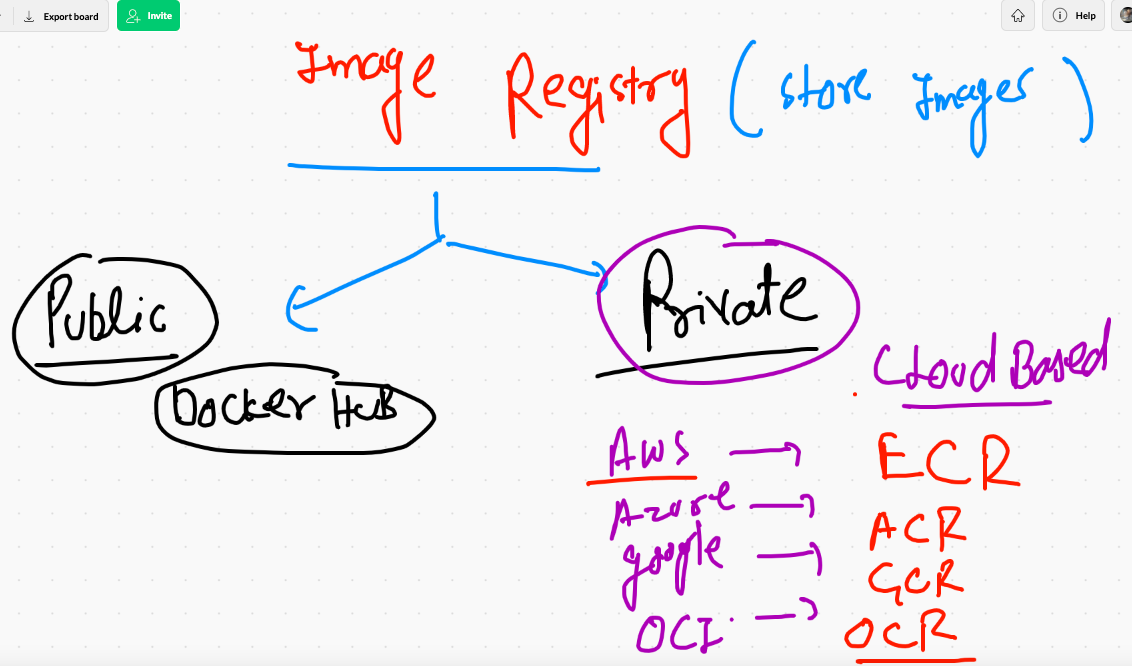 Export board
Invite
Help
Image Registry ( store Images )
Public
Private
Docker Hub
Cloud Based
AWS → ECR
Azure → ACR
google → GCR
OCI → OCR